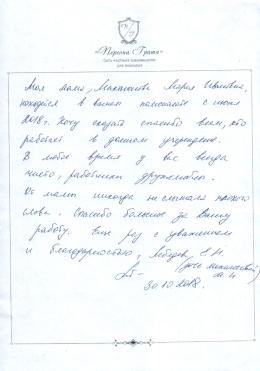 «Персона Грата»
Сеть частных пансионатов
для пожилых
Моя мама, Мария Ивановна,
находится в вашем пансионате с июня
2018г. Хочу сказать спасибо всем, кто
работает в данном учреждении.
В любое время у вас всегда
чисто, работники дружелюбны.
От мамы никогда не слышала плохого
слова. Спасибо большое за вашу
работу. Еще раз с уважением
и благодарностью, Лебедева Е.Н.
(дочь
М.И.
30.10.2018.